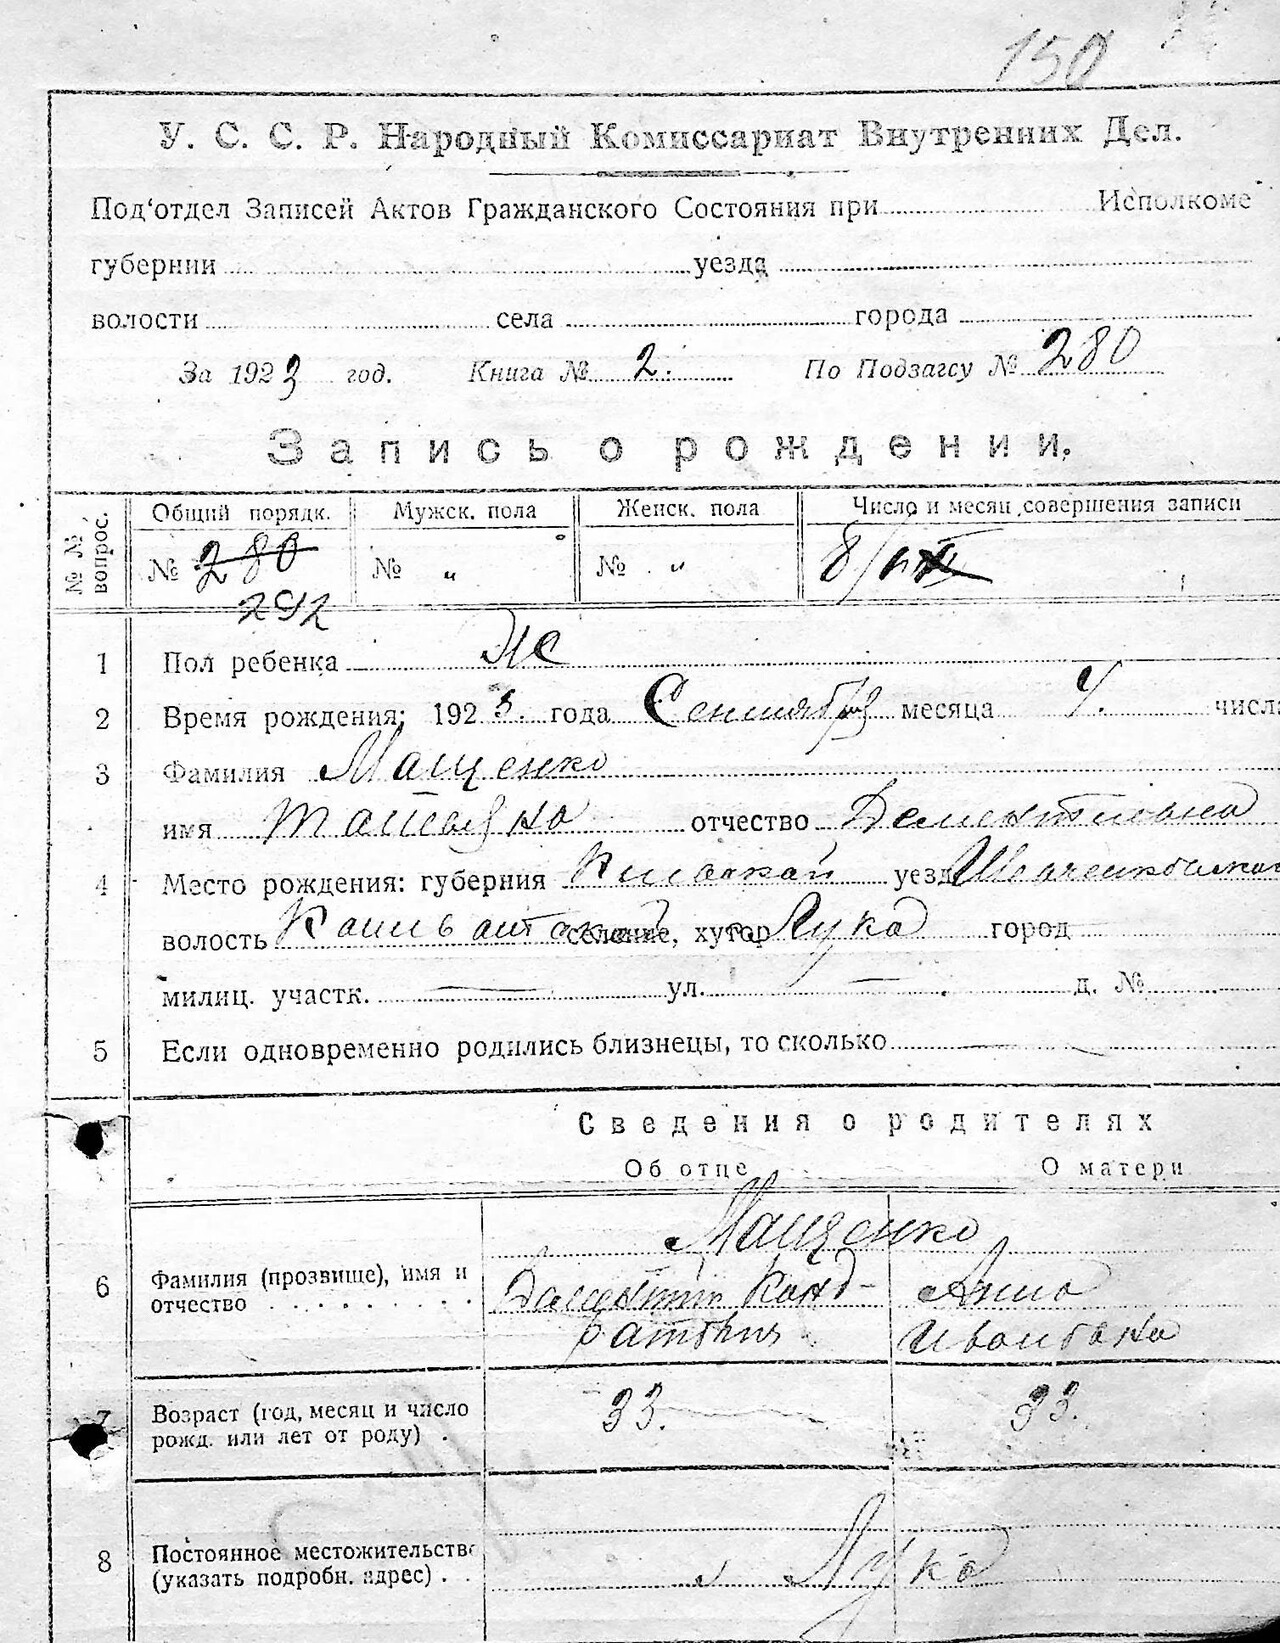 150
У. С. С. Р. Народный Комиссариат Внутренних Дел.
Под'отдел Записей Актов Гражданского Состояния при Исполкоме
губернии уезда
волости села города
За 1923 год. Книга № 2. По Подзагсу № 280
Запись о рождении.
№ № вопрос. Общий порядк. Мужск. пола Женск. пола Число и месяц совершения записи
№ 280 № „ № „ 8/
292
1 Пол ребенка Же
2 Время рождения: 1923. года Сентября месяца 7. числа
3 Фамилия Мащенко
имя Татьяна отчество Дементиевна
4 Место рождения: губерния Киевской уезд Шевченковской
волость селение, хутор Лука город
милиц. участк. — ул. — д. №
5 Если одновременно родились близнецы, то сколько —
Сведения о родителях
Об отце О матери
Мащенко
6 Фамилия (прозвище), имя и отчество Дементий Конд- Анна
ратович Ивановна
7 Возраст (год, месяц и число рожд. или лет от роду) . 33. 33.
8 Постоянное местожительство (указать подробн. адрес) . . Лука